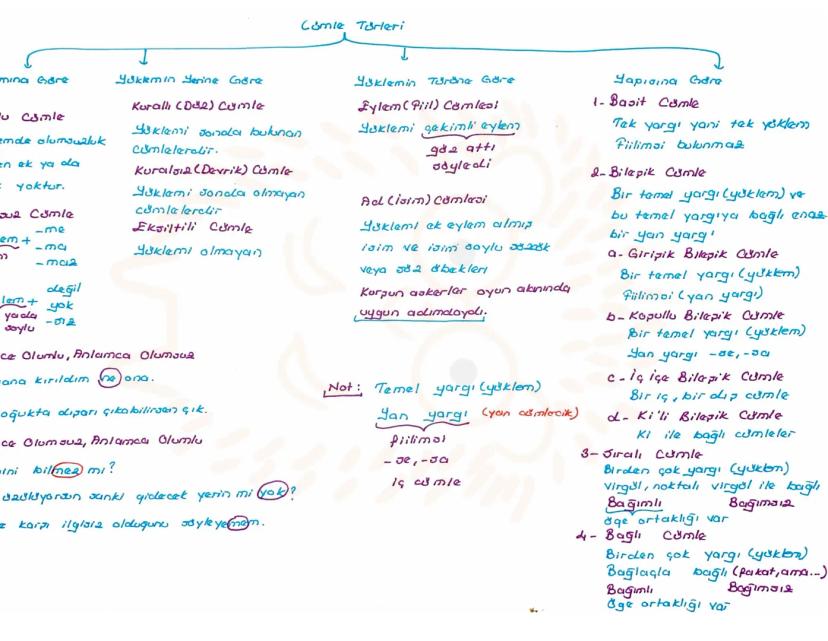 Cümle Türleri
mına Göre
lu Cümle
emde olumsuzluk
en ek ya da
yoktur.
suz Cümle
em + -me
-ma
-maz
lem + değil
yok
ya da -sız
soylu
ce Olumlu, Anlamca Olumsuz
ana kırıldım ne ona.
oğukta dışarı çıkabilirsen çık.
ce Olumsuz, Anlamca Olumlu
ini bilmez mi?
üzülüyorsun sanki gidecek yerin mi yok?
karşı ilgisiz olduğunu söyleyemem.
Yüklemin Yerine Göre
Kurallı (Düz) Cümle
Yüklemi sonda bulunan
cümlelerdir.
Kuralsız (Devrik) Cümle
Yüklemi sonda olmayan
cümlelerdir
Eksiltili Cümle
Yüklemi olmayan
Yüklemin Türüne Göre
Eylem (Fiil) Cümlesi
Yüklemi çekimli eylem
göz attı
söyledi
Ad (İsim) Cümlesi
Yüklemi ek eylem almış
isim ve isim soylu sözcük
veya söz öbekleri
Kurşun askerler oyun akınında
uygun adımdaydı.
Not: Temel yargı (yüklem)
Yan yargı (yan cümlecik)
fiilimsi
-se, -sa
iç cümle
Yapısına Göre
1- Basit Cümle
Tek yargı yani tek yüklem
Fiilimsi bulunmaz
2- Bileşik Cümle
Bir temel yargı (yüklem) ve
bu temel yargıya bağlı en az
bir yan yargı
a- Girişik Bileşik Cümle
Bir temel yargı (yüklem)
Fiilimsi (yan yargı)
b- Koşullu Bileşik Cümle
Bir temel yargı (yüklem)
Yan yargı -se, -sa
c- İç içe Bileşik Cümle
Bir iç, bir dış cümle
d- Ki'li Bileşik Cümle
Ki ile bağlı cümleler
3- Sıralı Cümle
Birden çok yargı (yüklem)
virgül, noktalı virgül ile bağlı
Bağımlı Bağımsız
öge ortaklığı var
4- Bağlı Cümle
Birden çok yargı (yüklem)
Bağlaçla bağlı (fakat, ama...)
Bağımlı Bağımsız
öge ortaklığı var